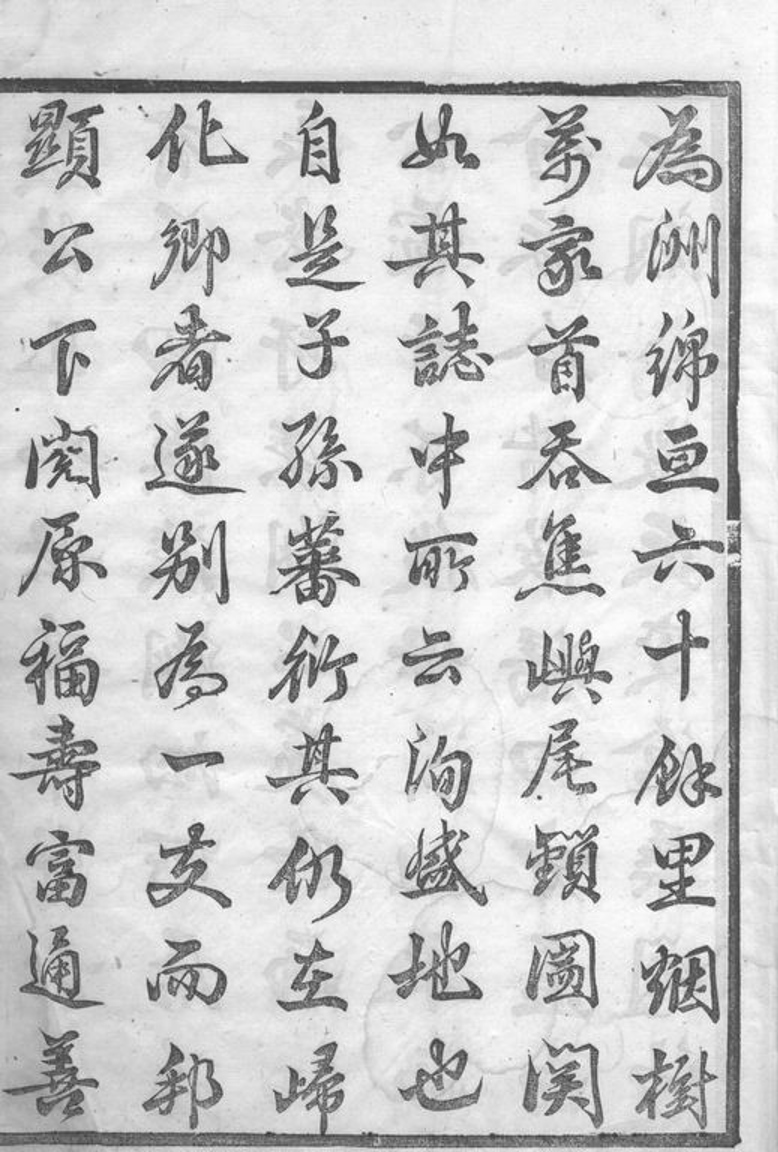 為洲綿亘六十餘里烟樹
萬家首吞焦嶼尾鎖圌関
如其誌中所云洵盛地也
自是子孫蕃衍其仍在歸
化卿者遂别為一支而邦
顕公下関原福壽富通善